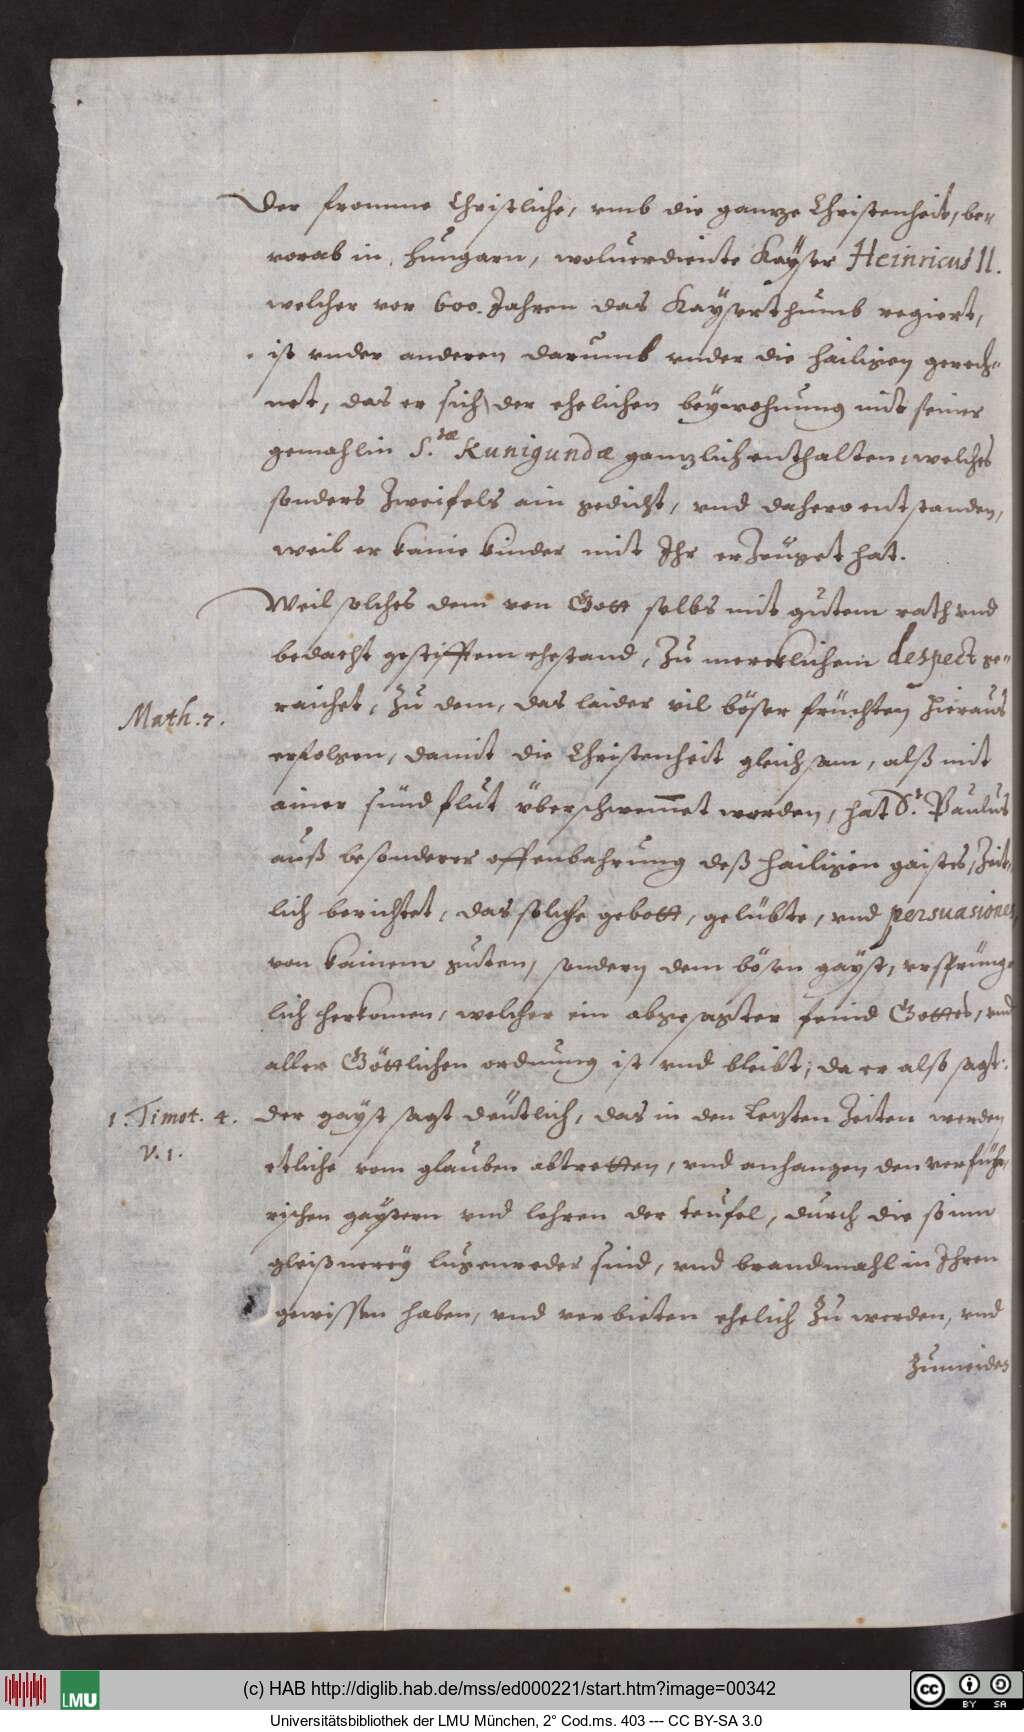 Der fromme Christliche, vmb die gantze Christenheit, be„
vorab in Hungarn, woluerdiente Kaÿser Heinricus II.
welcher vor 600. Jahren das Kaÿserthumb regiert,
ist vnder anderen darumb vnder die hailigen gerech„
net, das er sich der ehelichen beÿwohnung mit seiner
gemahlin S.tæ Kunigundæ gantzlich enthalten, welches
sonders Zweifels ain gedicht, vnd dahero entstanden,
weil er kaine kinder mit Ihr erZeüget hat.
Weil solches dem von Gott selbs mit gutem rath vnd
bedacht gestifftem ehestand, Zu mercklichem despect ge„
Math. 7.
raichet, Zu dem, das laider vil böser früchten hieraus
erfolgen, damit die Christenheit gleichsam, alß mit
ainer sündflut überschwem̄et worden, hat S.t Paulus
auß besonderer offenbahrung deß hailigen gaistes, Zeit„
lich berichtet, das solche gebott, gelübte, vnd persuasiones,
von kainem guten, sondern dem bösen gaÿst, vrsprüng„
lich herkomen, welcher ein abgesagter feind Gottes, vnd
aller Göttlichen ordnung ist vnd bleibt; da er also sagt:
1. Timot. 4.
v. 1.
der gaÿst sagt deütlich, das in den letzten Zeiten werden
etliche vom glauben abtretten, vnd anhangen den verfüh„
rischen gaÿstern vnd lehren der teufel, durch die so inn
gleißnereÿ lugenreder sind, vnd brandmahl in Ihren
gewissen haben, vnd verbieten ehelich Zu werden, vnd
Zumeiden
(c) HAB http://diglib.hab.de/mss/ed000221/start.htm?image=00342
LMU
cc BY SA
Universitätsbibliothek der LMU München, 2° Cod.ms. 403 --- CC BY-SA 3.0